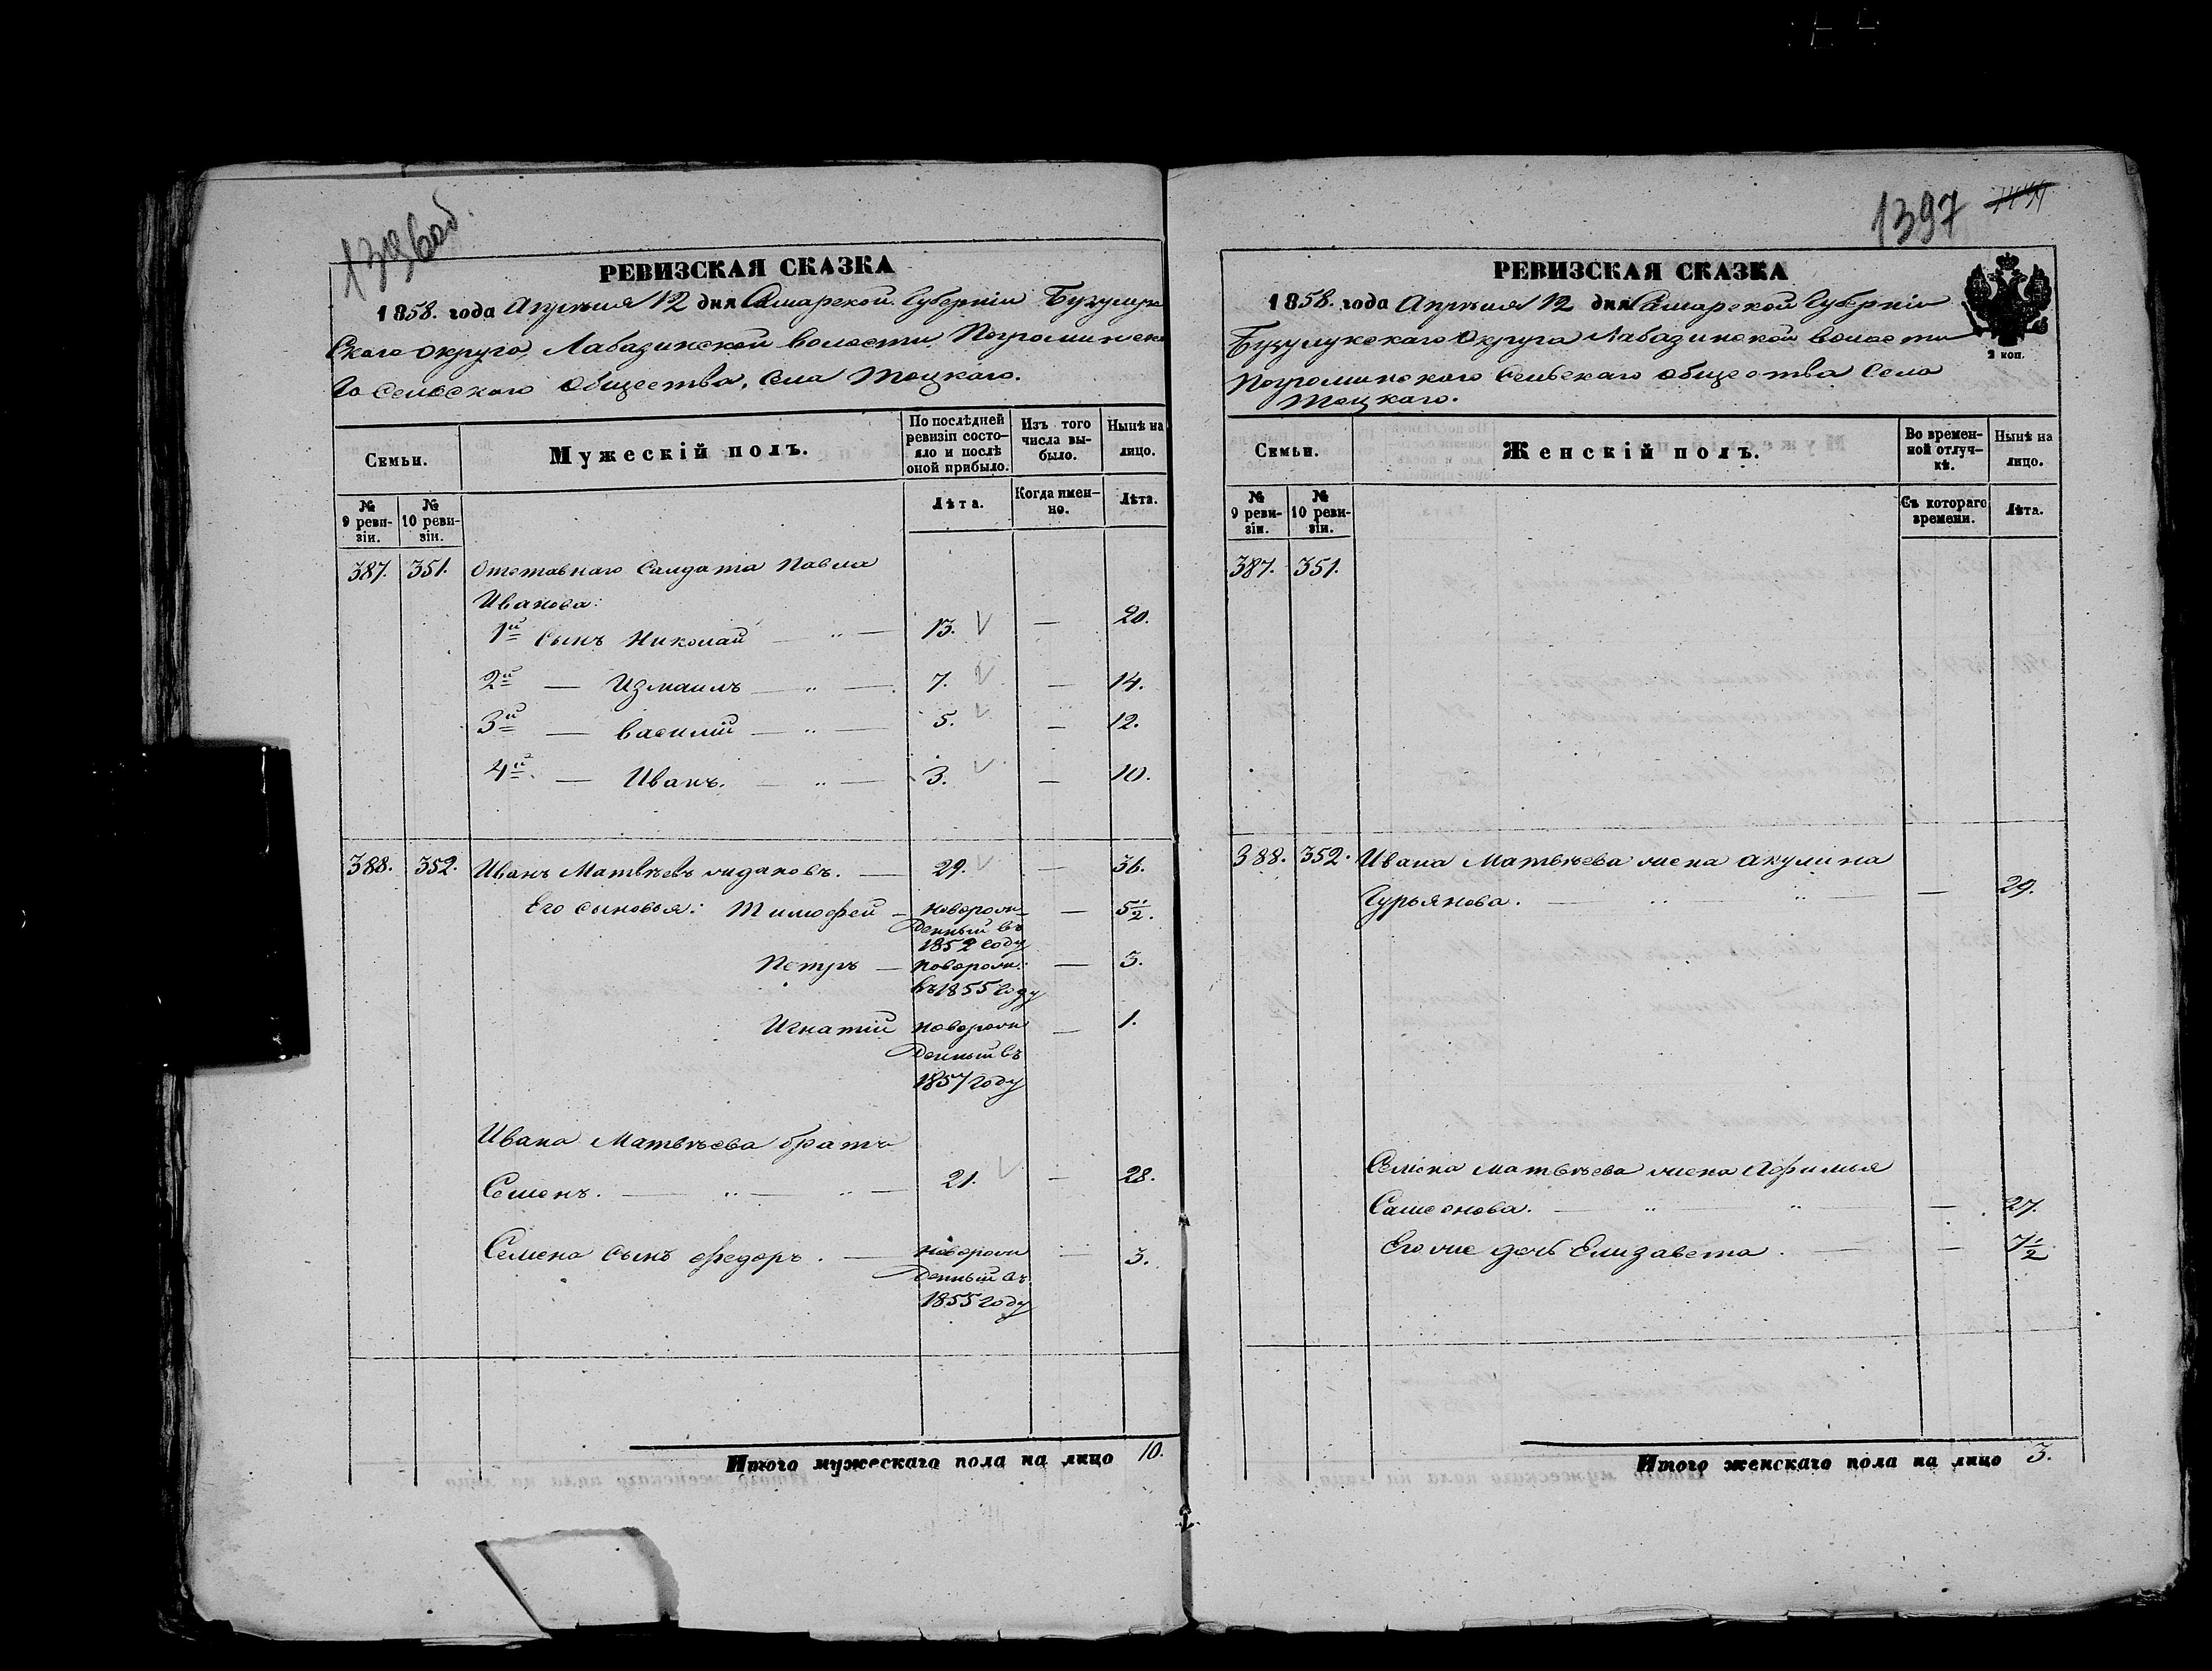 1396 об.
РЕВИЗСКАЯ СКАЗКА
1858. года Апрѣля 12 дня Самарской Губерніи Бузулук
Скаго округа, Лабазинской волости Погроминска
Го сельскаго общества, села Тоцкаго.
Семьи.
Мужескій полъ.
По послѣдней ревизіи состо-
яло и послѣ
оной прибыло.
Изъ того
числа вы-
было.
Нынѣ на
лицо.
№
9 реви-
зіи.
№
10 реви-
зіи.
Лѣта.
Когда имен-
но.
Лѣта.
387. 351. Отставнаго Салдата Павла
Иванова:
1й Сынъ Николай — „ — 13. — 20.
2й — Измаилъ — „ — 7. — 14.
3й — Василій — „ — 5. — 12.
4й — Иванъ. — „ — 3. — 10.
388. 352. Иванъ Матвѣевъ — 29. — 36.
Его сыновья: Тимофей — Новорож-
денный въ
1852 году — 5½.
Петръ — новорож:
въ 1855 году — 3.
Игнатій новорож
денный въ
1857 году — 1.
Ивана Матвѣева братъ
Семенъ. — „ — „ — 21. — 28.
Семена сынъ Федоръ. — новорож
денный въ
1855 году — 3.
Итого мужескаго пола на лицо 10.
1397
РЕВИЗСКАЯ СКАЗКА
2 коп.
1858. года Апрѣля 12 дня Самарской Губерніи
Бузулукскаго Округа Лабазинской волости
Погроминскаго Сельскаго общества Села
Тоцкаго.
Семьи.
Женскій полъ.
Во времен-
ной отлуч-
кѣ.
Нынѣ на
лицо.
№
9 реви-
зіи.
№
10 реви-
зіи.
Съ котораго
времени.
Лѣта.
387. 351.
388. 352. Ивана Матвѣева жена Акулина
Гурьянова. — „ „ — 29.
Семена Матвѣева жена Афимья
Самсонова. — „ „ — 27.
Его же дочь Елизавета. — — 7½
Итого женскаго пола на лицо 3.